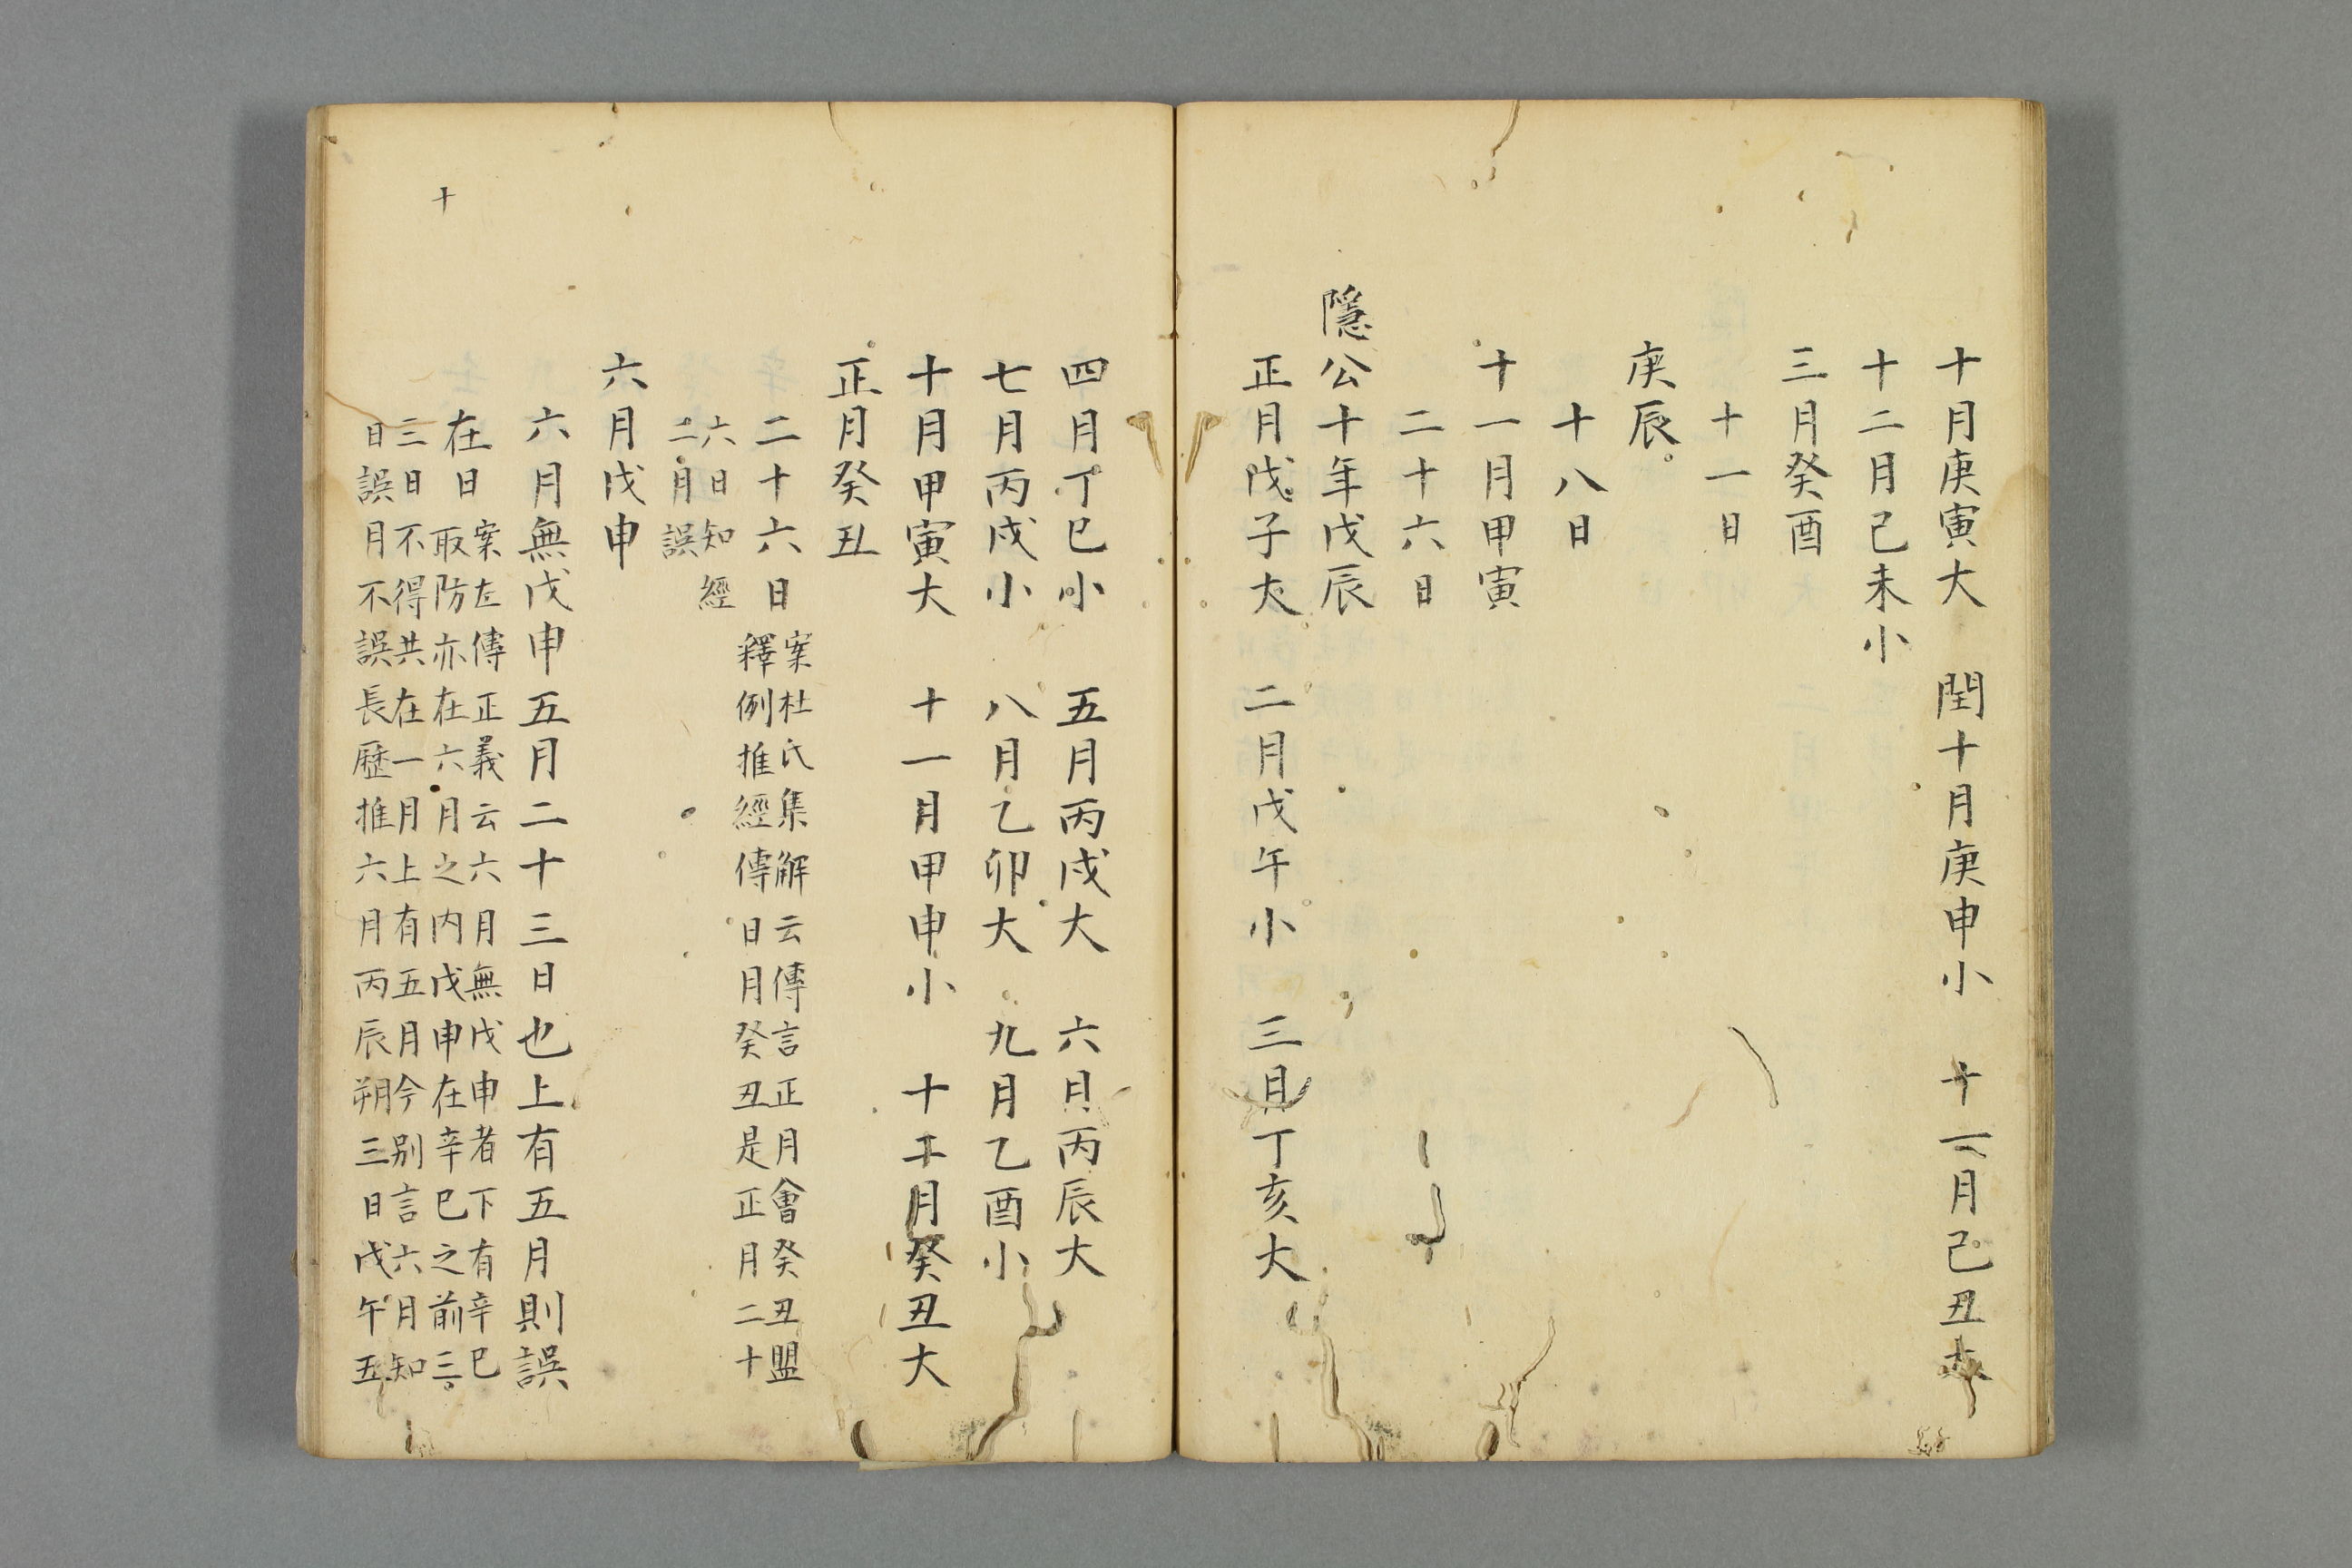 十月庚寅大　閏十月庚申小　十一月己丑大
十二月己未小
三月癸酉
十一日
庚辰
十八日
十一月甲寅
二十六日
隱公十年戊辰
正月戊子大　二月戊午小　三月丁亥大
四月丁巳小　五月丙戌大　六月丙辰大
七月丙戌小　八月乙卯大　九月乙酉小
十月甲寅大　十一月甲申小　十二月癸丑大
正月癸丑
二十六日
案杜氏集解云傳言正月會癸丑盟
釋例推經傳日月癸丑是正月二十
六日知經
二月誤
六月戊申
六月無戊申五月二十三日也上有五月則誤
在日
案左傳正義云六月無戊申者下有辛巳
取防亦在六月之內戊申在辛巳之前三
三日不得共在一月上有五月今別言六月知
日誤月不誤長歷推六月丙辰朔三日戊午五
十